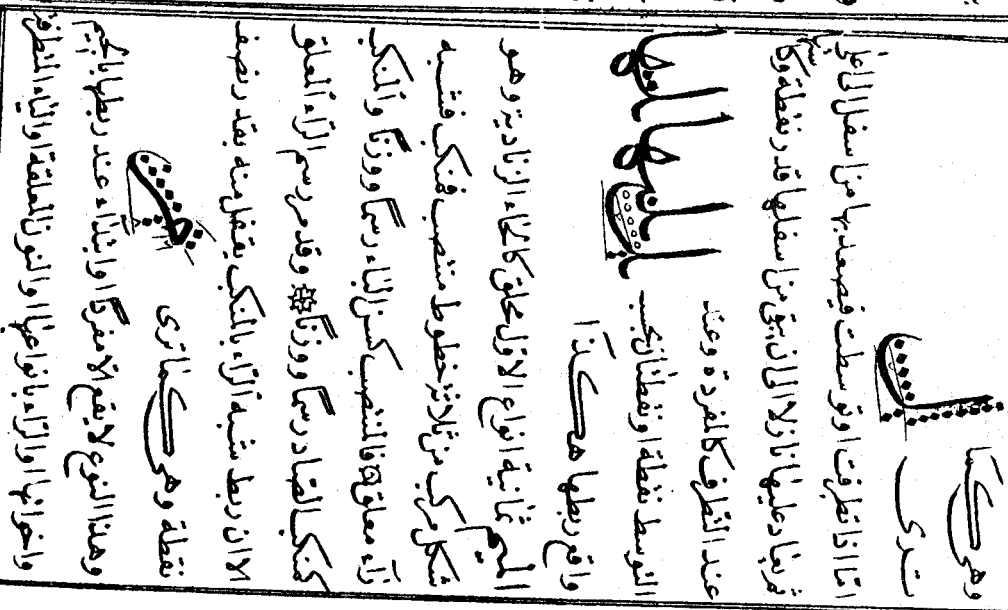 وهي كما
ترى
امّا اذا تطرفت او توسطت فيصعد بها من اسفل الى اعلى
ثم يعاد عليها نازلا الى ان يبقى من اسفلها قدر نقطة
عند التطرف كالمفردة وعند
التوسط نقطة او نقطتان
واقع ربطها هكذا
الميم ثمانية انواع الاول محقق كالحاء الزنادية وهو
شكل مركب من ثلاثة خطوط منتصب فمنكب فشبه
راء معلق فالمنتصب كسن الباء رسمًا ووزنًا والمنكب
كمنكب الصاد رسمًا ووزنًا وقد مر رسم الراء المعلق
الا ان ربط شبه الراء بالمنكب يقفل منه بقدر نصف
نقطة وهي كما ترى
وهذا النوع لا يقع الا مفردًا وابتداء عند ربطها بالجيم
واخواتها او الراء بانواعها والنون المعلقة او الياء